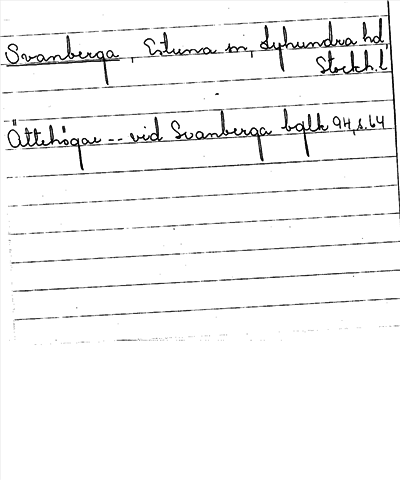 Svanberga, Estuna sn, Lyhundra hd,
Stockh. l
Ättehögar -- vid Svanberga bglk 94, s. 64